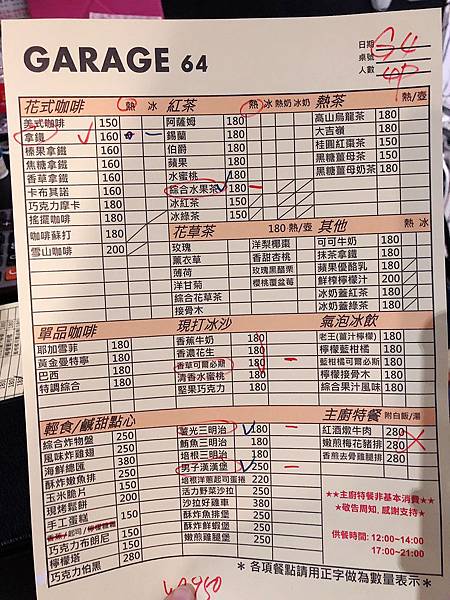 GARAGE 64
日期 G4
桌號
人數 4P
花式咖啡 熱 冰
美式咖啡 150
拿鐵 160
榛果拿鐵 160
焦糖拿鐵 160
香草拿鐵 160
卡布其諾 160
巧克力摩卡 180
搖擺咖啡 180
咖啡蘇打 180
雪山咖啡 200
紅茶 熱 冰 熱奶 冰奶
阿薩姆 180
錫蘭 180
伯爵 180
蘋果 180
水蜜桃 180
綜合水果茶 180
冰紅茶 150
冰綠茶 150
熱茶 熱/壺
高山烏龍茶 180
大吉嶺 180
桂圓紅棗茶 150
黑糖薑母茶 150
黑糖薑母奶茶 180
花草茶 180 熱/壺
玫瑰
薰衣草
薄荷
洋甘菊
綜合花草茶
接骨木
洋梨椰棗
香甜杏桃
玫瑰黑醋栗
櫻桃覆盆莓
其他 熱 冰
可可牛奶 180
抹茶拿鐵 180
蘋果優酪乳 180
鮮榨檸檬汁 200
冰奶蓋紅茶 180
冰奶蓋綠茶 180
單品咖啡
耶加雪菲 180
黃金曼特寧 180
巴西 180
特調綜合 180
現打冰沙
香蕉牛奶 180
香濃花生 180
香草可爾必思 180
清香水蜜桃 180
堅果巧克力 180
氣泡冰飲
老王(薑汁檸檬) 180
檸檬藍柑橘 180
藍柑橘可爾必斯 180
檸檬接骨木 180
綜合果汁風味 180
輕食/鹹甜點心
綜合炸物盤 250
風味炸雞翅 250
海鮮總匯 380
酥炸嫩魚排 250
玉米脆片 150
現烤鬆餅 200
手工蛋糕 150
巧克力布朗尼 150
檸檬塔 280
巧克力伯黑 280
薯光三明治 180
鮪魚三明治 180
培根三明治 180
男子漢漢堡 250
培根洋蔥起司蛋捲 220
活力野菜沙拉 250
沙拉好雞車 380
酥炸魚排堡 250
酥炸鮮蝦堡 250
嫩煎雞腿堡 250
主廚特餐 附白飯/湯
紅酒燉牛肉 280
嫩煎梅花豬排 280
香煎去骨雞腿排 280
★★主廚特餐非基本消費★★
★敬告周知, 感謝支持★
供餐時間: 12:00~14:00
17:00~21:00
＊各項餐點請用正字做為數量表示＊